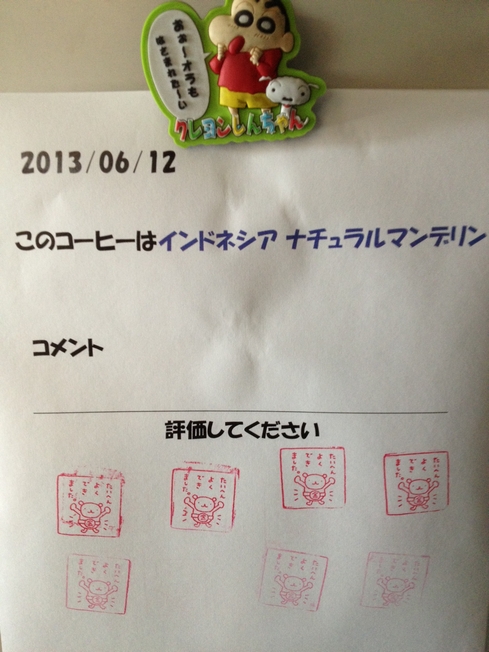 あぁーオラも
はさまれたーい
クレヨンしんちゃん
2013/06/12
このコーヒーはインドネシア ナチュラルマンデリン
コメント
評価してください
たいへん
よく
でき
ました。
たいへん
よく
でき
ました。
たいへん
よく
でき
ました。
たいへん
よく
でき
ました。
たいへん
よく
でき
ました。
たいへん
よく
でき
ました。
たいへん
よく
でき
ました。